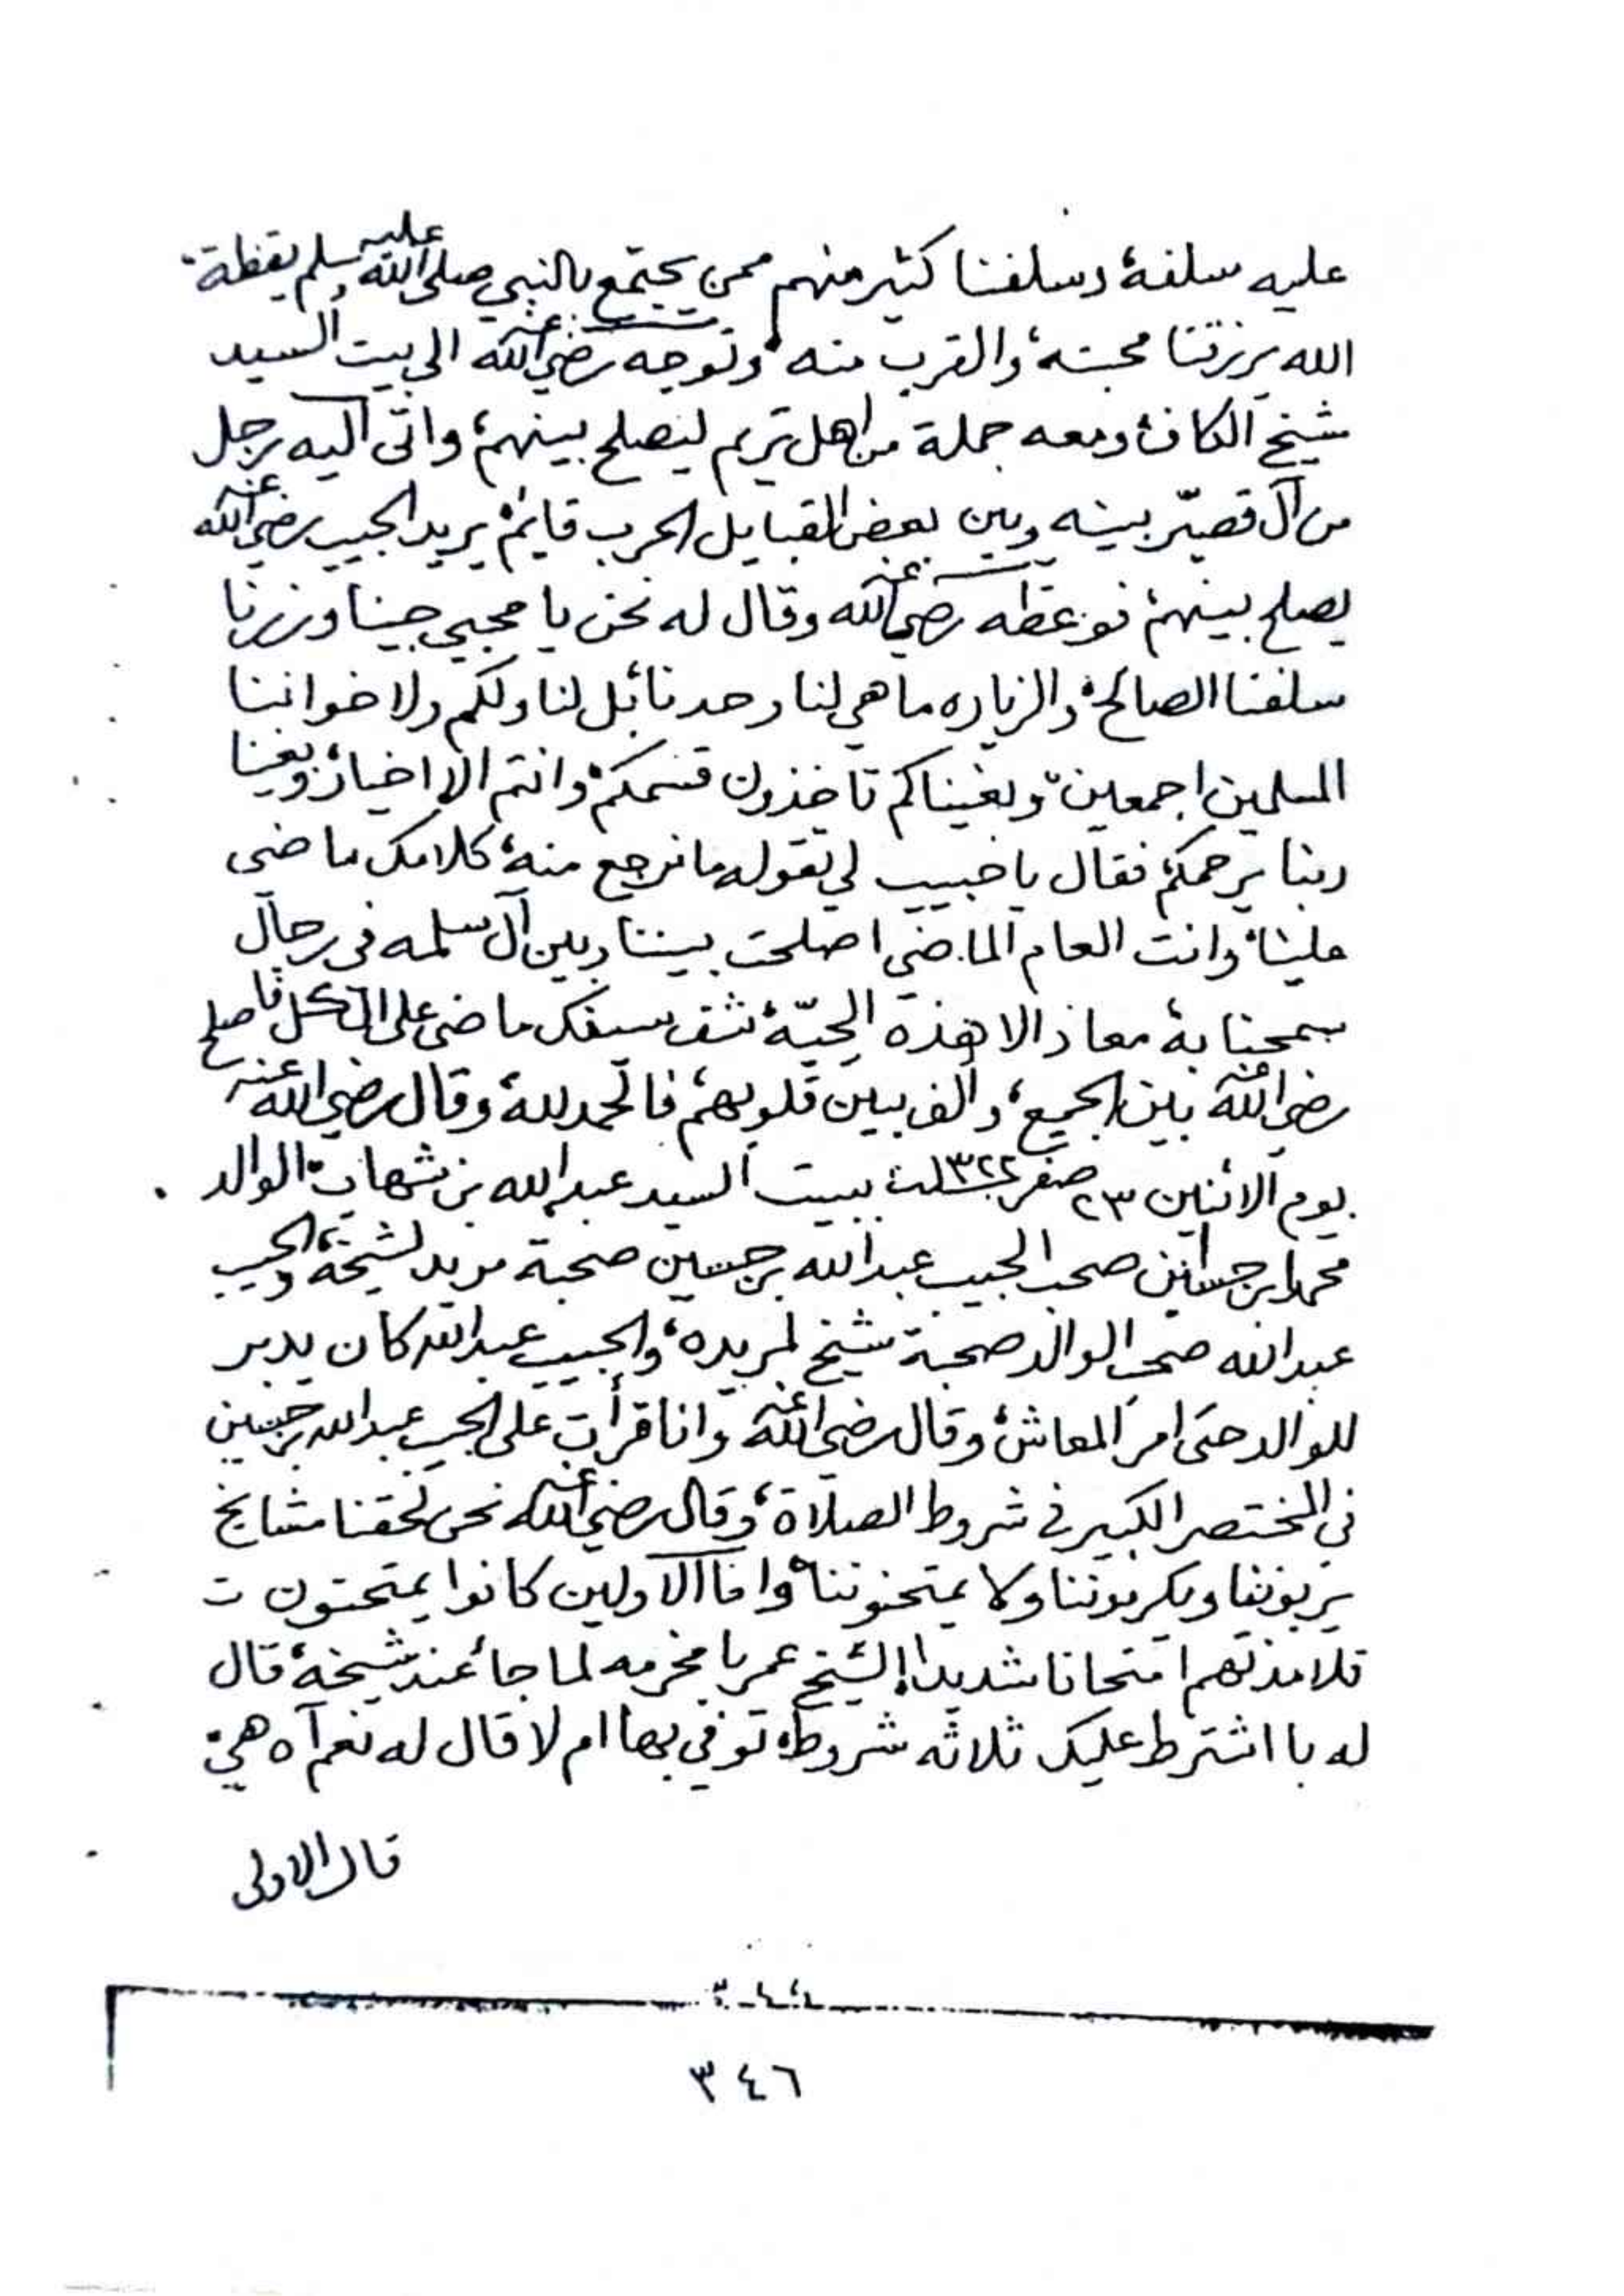 عليه سلفه، وسلفنا كثير منهم ممن يجتمع بالنبي صلى الله عليه وسلم يقظة،
الله يرزقنا محبته، والقرب منه، وتوجه رضي الله عنه الى بيت السيد
شيخ الكاف، ومعه جملة من اهل تريم ليصلح بينهم، واتى اليه رجل
من آل قصيّر بينه وبين بعض القبايل الحرب قايم، يريد الحبيب رضي الله عنه
يصلح بينهم، فوعظه رضي الله عنه وقال له نحن يا محبي جينا وزرنا
سلفنا الصالح، والزياره ما هي لنا وحدنا بل لنا ولكم ولاخواننا
المسلمين اجمعين، وبغيناكم تاخذون قسمكم، وانتم الا اخيار، وبغينا
ربنا يرحمكم، فقال يا حبيب لي تقوله ما نرجع منه، كلامك ماضي
علينا، وانت العام الماضي اصلحت بيننا وبين آل سلمه في رجال
سمحنا به، معاد الا هذه الحبّة، شف سيفك ماضي على الكل، فاصلح
رضي الله عنه بين الجميع، والف بين قلوبهم، فالحمد لله، وقال رضي الله عنه
يوم الاثنين ٢٣ صفر ١٣٢٢ ببيت السيد عبد الله بن شهاب، الوالد
محمد بن حسين صحب الحبيب عبد الله بن حسين صحبة مريد لشيخه، والحبيب
عبد الله صحب الوالد صحبة شيخ لمريده، والحبيب عبد الله كان يدبر
للوالد حتى امر المعاش، وقال رضي الله عنه وانا قرأت على الحبيب عبد الله بن حسين
في المختصر الكبير في شروط الصلاة، وقال رضي الله عنه نحن لحقنا مشايخ
يربوننا ويكرموننا ولا يمتحنوننا، واما الاولين كانوا يمتحنون ت
تلامذتهم امتحانا شديدا، الشيخ عمر بامخرمه لما جاء عند شيخه، قال
له با اشترط عليك ثلاثه شروط، توفي بها ام لا قال له نعم آه هي،
قال الاولى
٣٤٤
٣٤٦